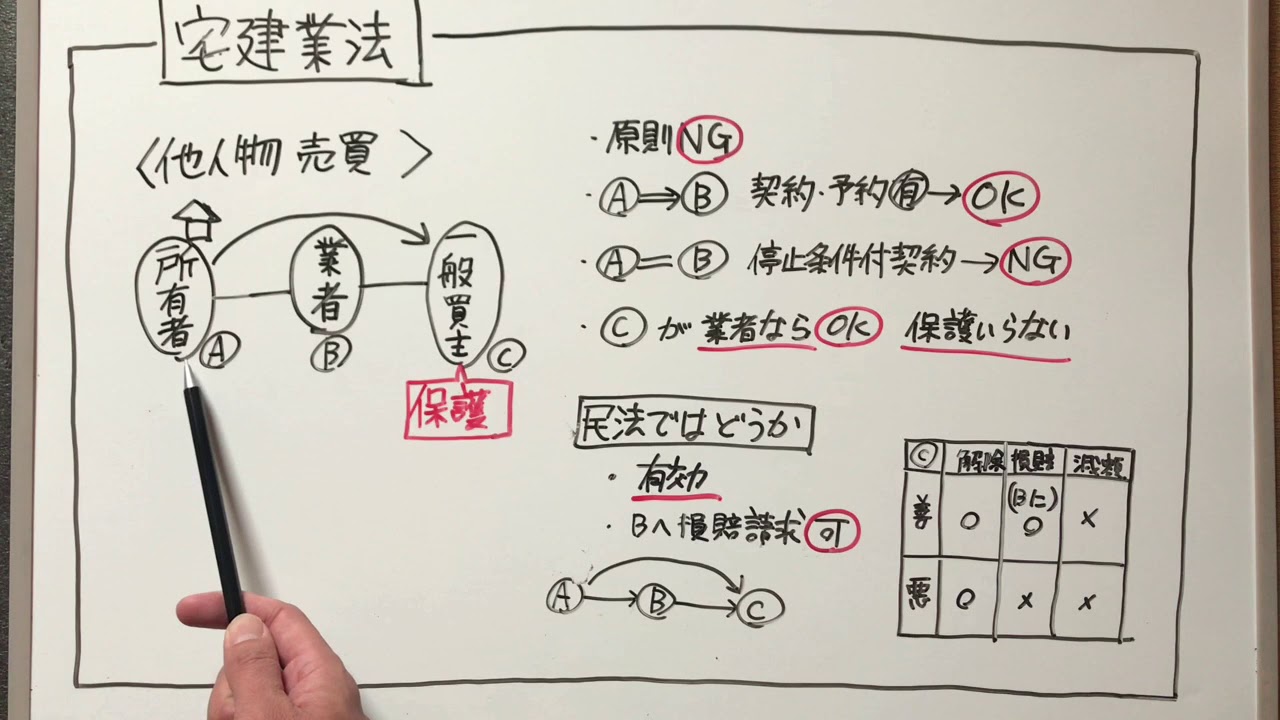 宅建業法
〈他人物売買〉
所有者
A
業者
B
一般買主
C
保護
・原則NG
・A⇒B 契約・予約有→OK
・A=B 停止条件付契約→NG
・Cが業者ならOK 保護いらない
民法ではどうか
・有効
・Bへ損賠請求可
A→B→C
C 解除 損賠 減額
善 ○ (Bに)○ ×
悪 ○ × ×